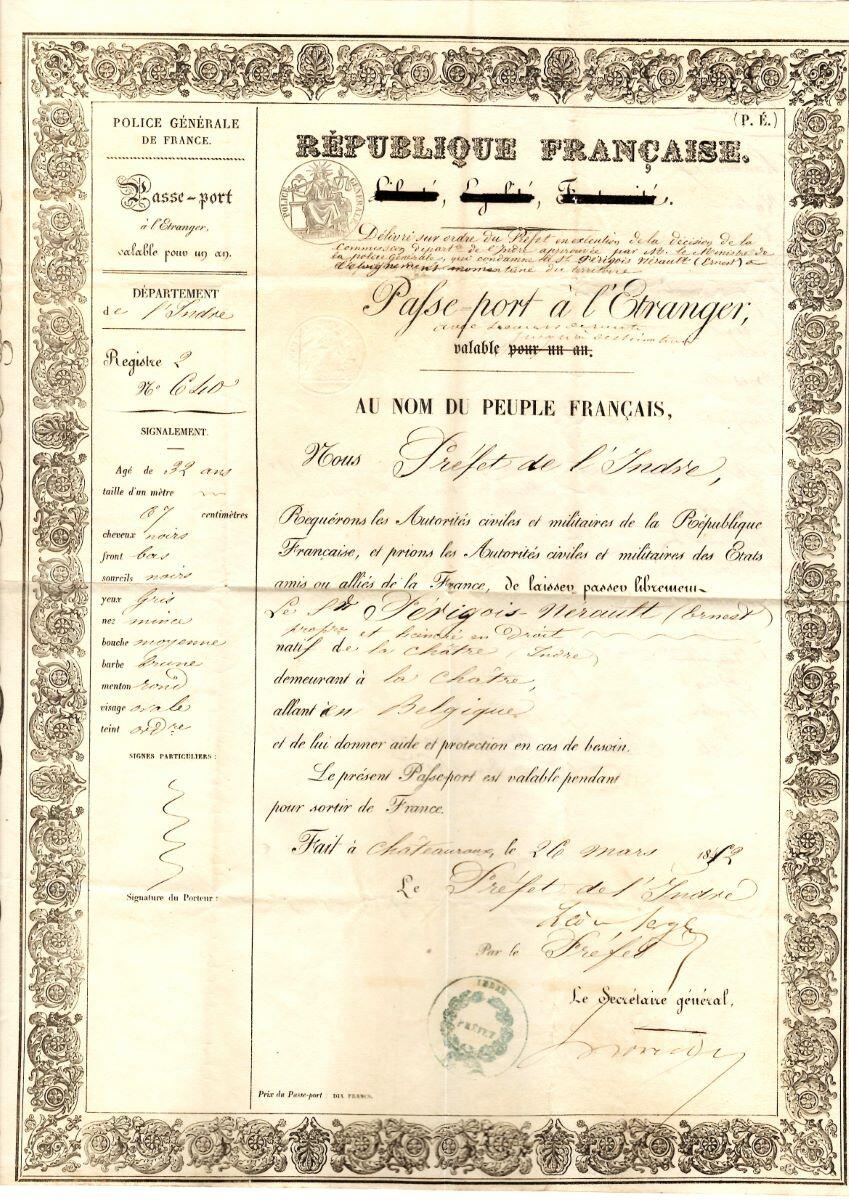 POLICE GÉNÉRALE
DE FRANCE.
Passe-port
à l'Etranger,
valable pour un an.
DÉPARTEMENT
de l'Indre
Registre 2
N° 640
SIGNALEMENT.
Agé de 32 ans
taille d'un mètre
67 centimètres
cheveux noirs
front bas
sourcils noirs
yeux gris
nez mince
bouche moyenne
barbe brune
menton rond
visage ovale
teint ordre
SIGNES PARTICULIERS :
Signature du Porteur :
(P. É.)
RÉPUBLIQUE FRANÇAISE.
Liberté, Egalité, Fraternité.
POLICE GÉNÉRALE
Délivré sur ordre du Préfet en exécution de la décision de la
Commission départle de l'Indre approuvée par M. le Ministre de
la police générale, qui condamne le Sr Périgois Nérault (Ernest) à
l'éloignement momentané du territoire
Passe-port à l'Etranger,
avec secours de route
jusqu'à destination
valable pour un an.
AU NOM DU PEUPLE FRANÇAIS,
Nous Préfet de l'Indre,
Requérons les Autorités civiles et militaires de la République
Française, et prions les Autorités civiles et militaires des Etats
amis ou alliés de la France, de laisser passer librement
Le Sr Périgois-Nérault (Ernest)
propre et licencié en Droit
natif de la châtre (Indre)
demeurant à la châtre,
allant en Belgique
et de lui donner aide et protection en cas de besoin.
Le présent Passe-port est valable pendant
pour sortir de France.
Fait à châteauroux, le 26 mars 1852
Le Préfet de l'Indre
Par le Préfet
Le Secrétaire général,
INDRE
PRÉFET
Prix du Passe-port : DIX FRANCS.